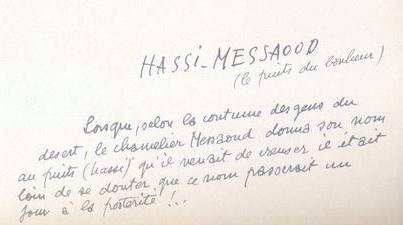 HASSI-MESSAOUD
(le puits du bonheur)
Lorsque, selon la coutume des gens du
désert, le chamelier Messaoud donna son nom
au puits (hassi) qu'il venait de creuser il était
loin de se douter, que ce nom passerait un
jour à la postérité !...